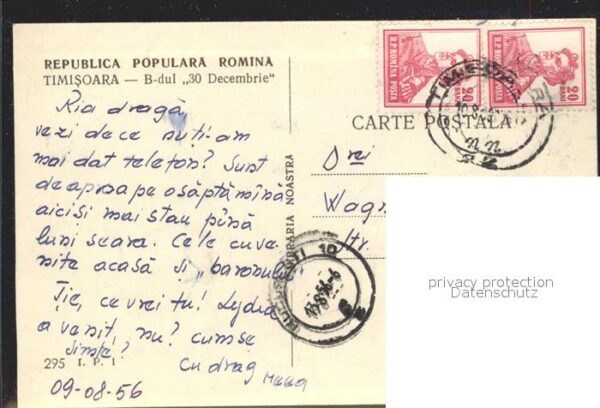 REPUBLICA POPULARA ROMINA
TIMIȘOARA — B-dul „30 Decembrie"
Ria dragă
vezi de ce nu ți-am
mai dat telefon? Sunt
de aproape o săptămînă
aici și mai stau pînă
luni seara. Cele cuve-
nite acasă și „baronului"
Ție, ce vrei tu! Lydia
a venit, nu? cum se
simte?
Cu drag
295 I. P. 1
09-08-56
LIBRARIA NOASTRA
CARTE POSTALA
R.P. ROMINA POSTA
20 BANI
R.P. ROMINA POSTA
20 BANI
TIMISOARA
BUCURESTI 10
Wagn
Str.
privacy protection
Datenschutz